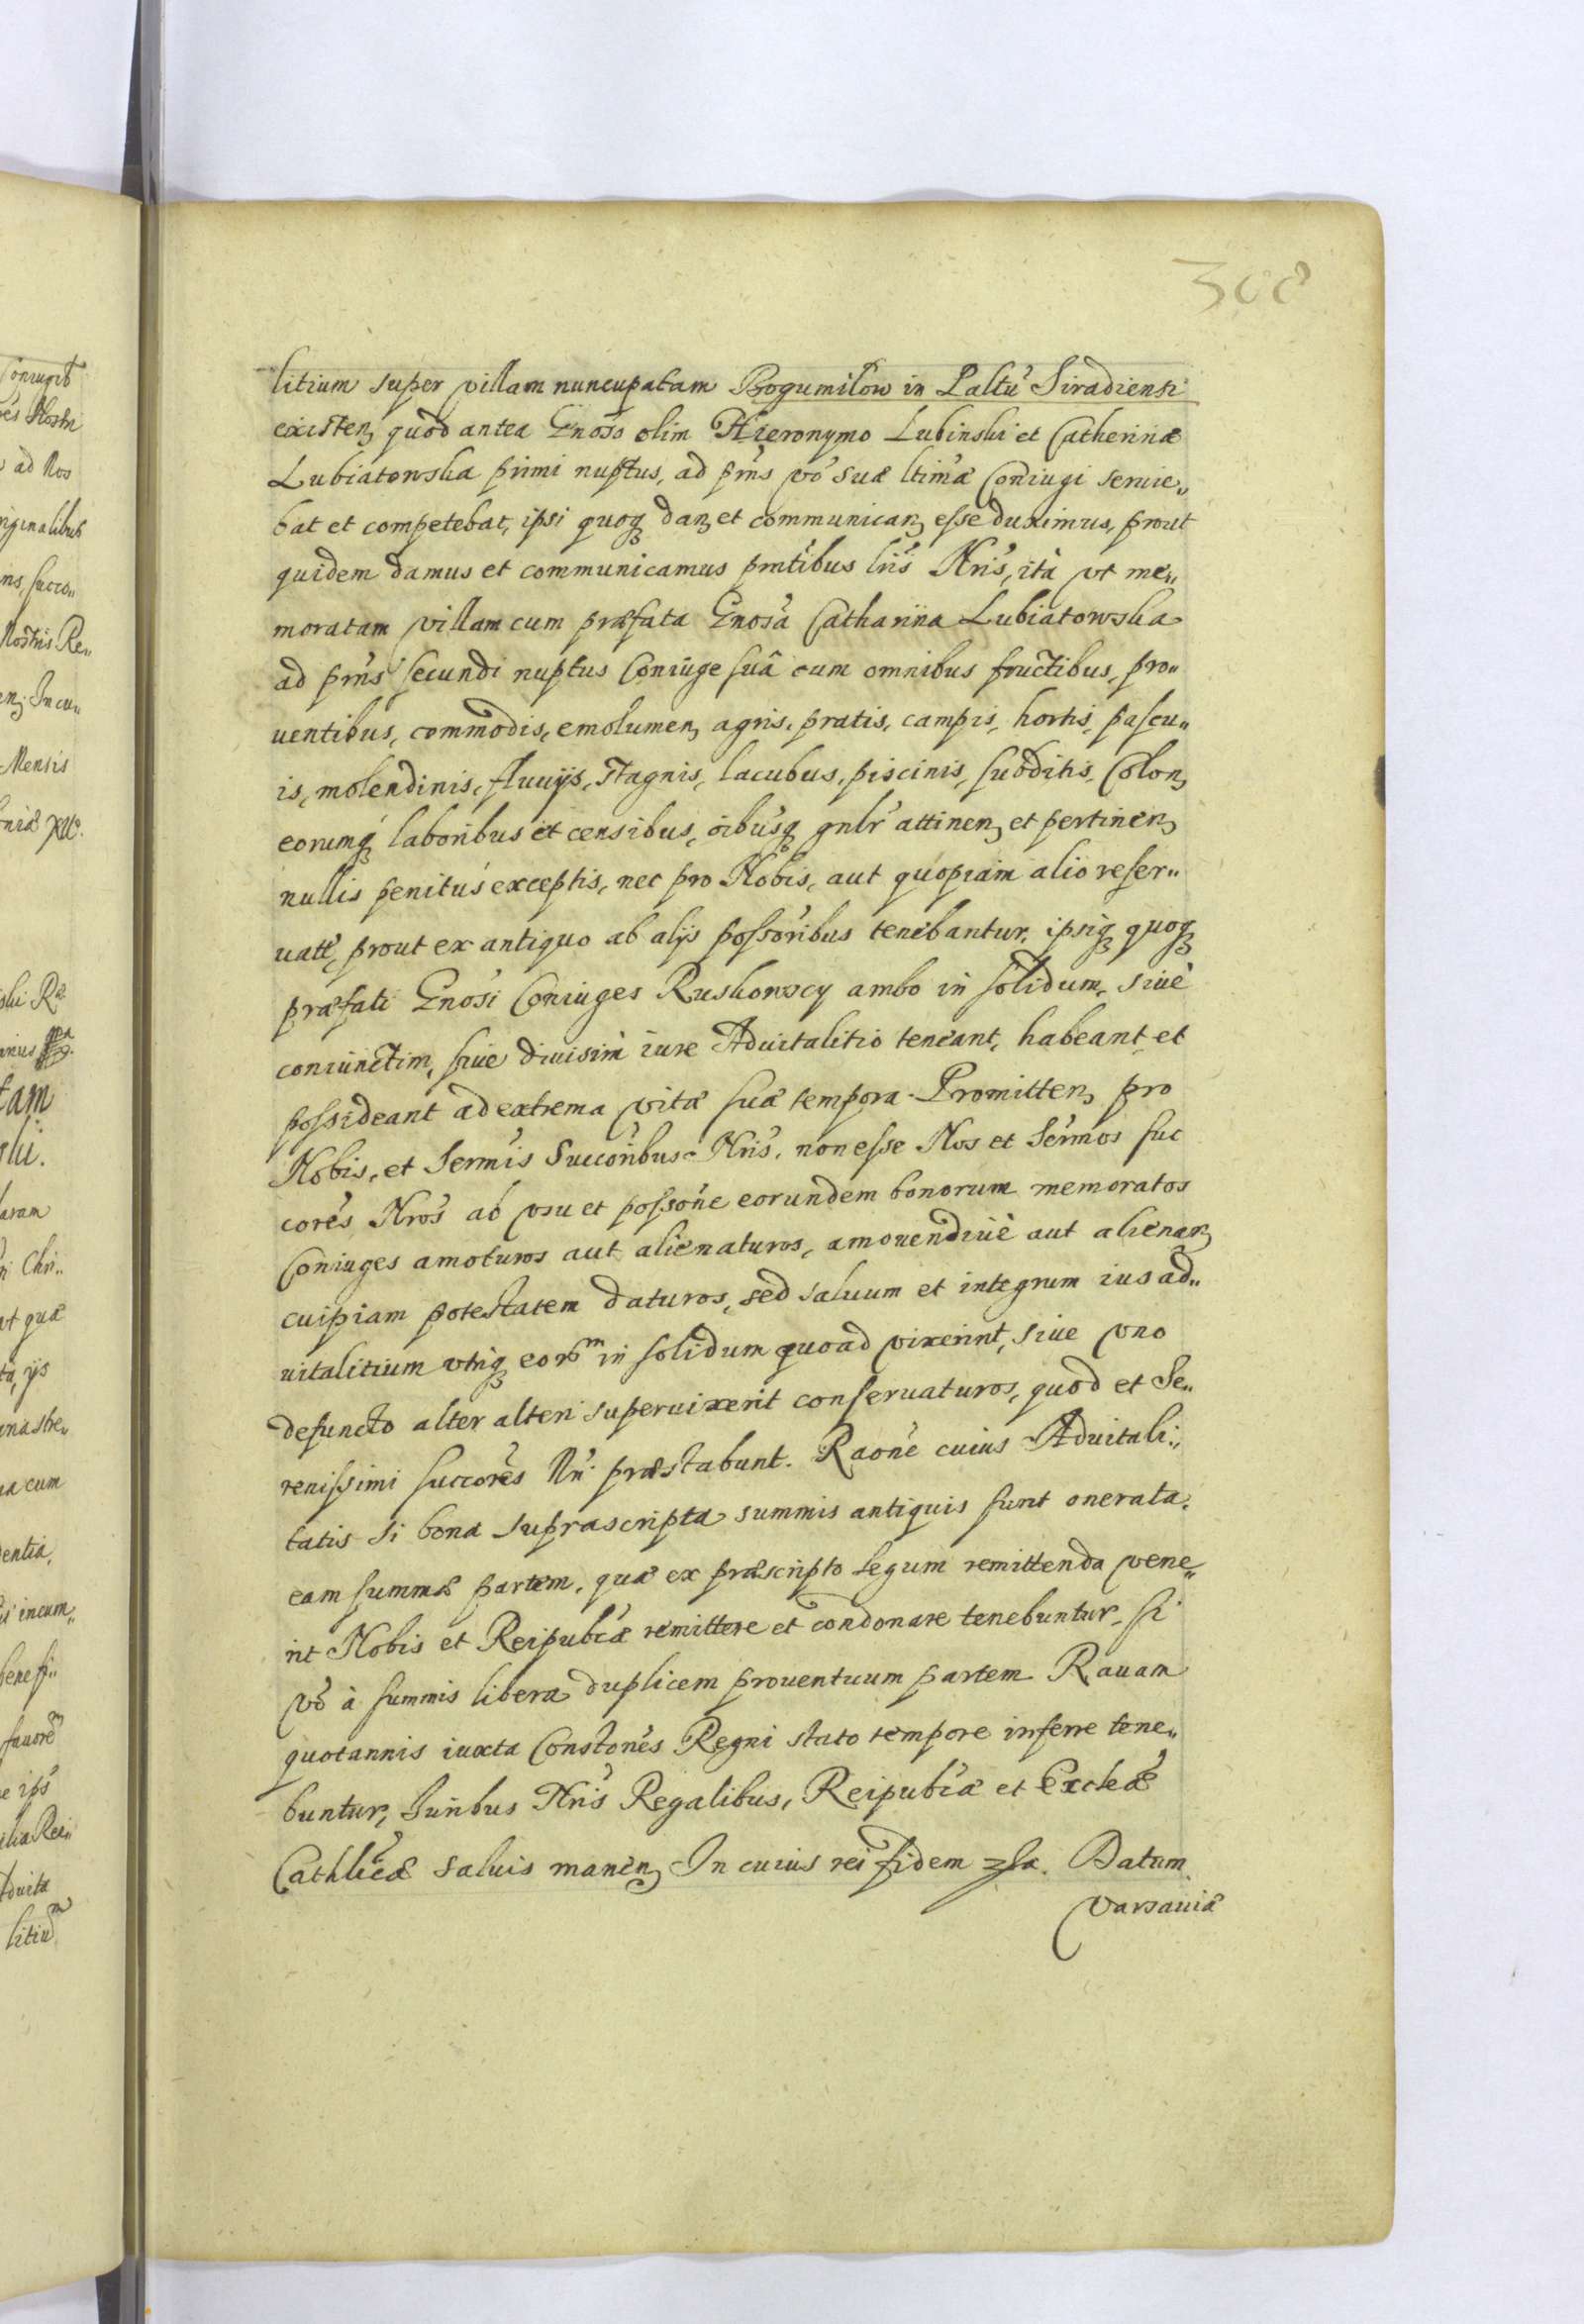 308
litium super villam nuncupatam Bogumilow in Paltũ Siradiensi
existen, quod antea Gnoso olim Hieronymo Lubinski et Catherinæ
Lubiatowska primi nuptus, ad pñs vó suæ ltimæ Coniugi seruie„
bat et competebat, ipsi quoq dan, et communican, esse duximus, prout
quidem damus et communicamus pntibus lris Nris, ità vt me„
moratam villam cum præfata Gnosa Catharina Lubiatowska
ad pñs secundi nuptus Coniuge suâ cum omnibus fructibus, pro„
uentibus, commodis, emolumen, agris, pratis, campis, hortis, pascu„
is, molendinis, fluuijs, stagnis, lacubus, piscinis, subditis, Colon,
eorumq laboribus et censibus, oibusq gnlr attinen, et pertinen,
nullis penitus exceptis, nec pro Nobis, aut quopiam alio reser„
uatt, prout ex antiquo ab alijs possoribus tenebantur, ipsiq quoq
præfati Gnosi Coniuges Ruskowscy ambo in solidum, siue
coniunctim, siue diuisim iure Aduitalitio teneant, habeant et
possideant ad extrema vitæ suæ tempora. Promitten, pro
Nobis, et Sermis Succoribus Nris, non esse Nos et Sermos suc
cores Nros ab vsu et possone eorundem bonorum memoratos
Coniuges amoturos aut alienaturos, amouendiuè aut alienan,
cuipiam potestatem daturos, sed saluum et integrum ius ad„
uitalitium vtriq eorum in solidum quoad vixerint, siue vno
defuncto alter alteri superuixerit conseruaturos, quod et Se„
renissimi succores Nri præstabunt. Raone cuius Aduitali„
tatis si bona suprascripta summis antiquis sunt onerata,
eam summæ partem, quæ ex præscripto legum remittenda vene„
rit Nobis et Reipublcæ remittere et condonare tenebuntur, si
vó à summis libera duplicem prouentuum partem Rauam
quotannis iuxta Constones Regni stato tempore inferre tene„
buntur, Iuribus Nris Regalibus, Reipublcæ et Ecclcæ
Cathlicæ saluis manen, In cuius rei fidem Datum
Varsauiæ